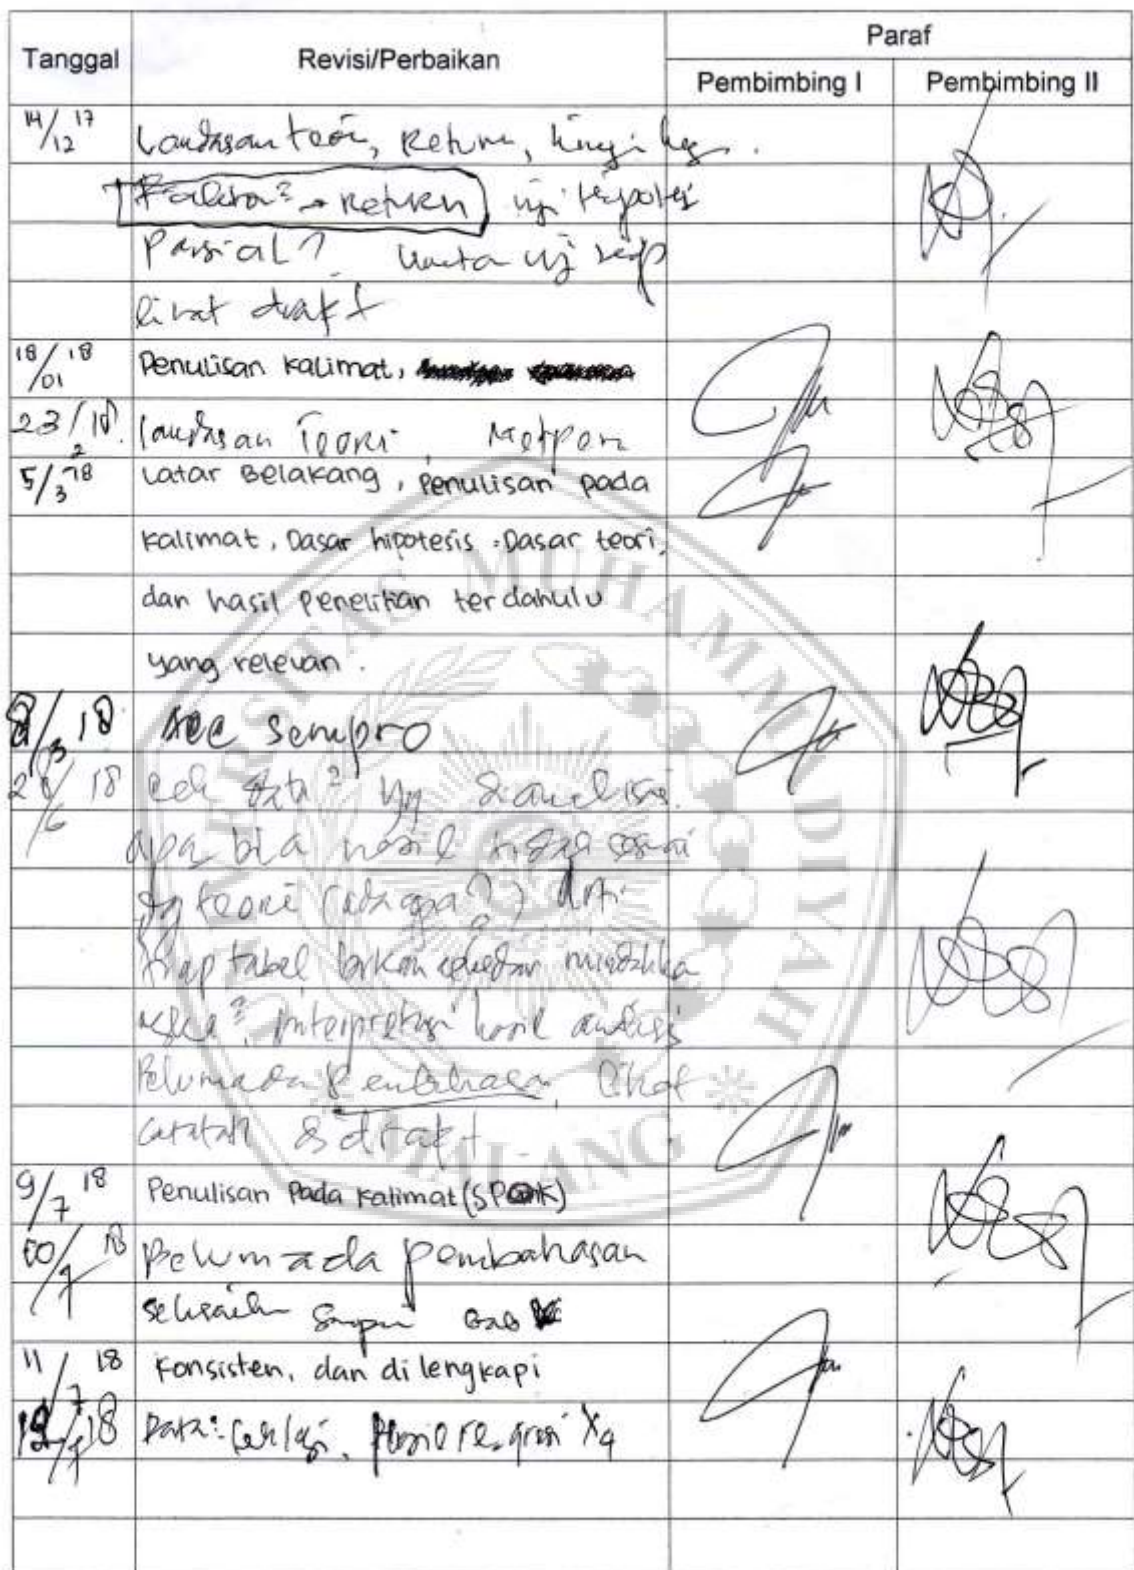 Tanggal Revisi/Perbaikan Paraf
Pembimbing I Pembimbing II
14/12 17 Landasan teori, Return,
Faktor² → Return uji hipotesis
Parsial?
lihat draft
18/01 18 Penulisan Kalimat,
23/2 18. landasan Teori, Metpen
5/3 18 Latar Belakang, Penulisan pada
kalimat, Dasar hipotesis = Dasar teori,
dan hasil penelitian terdahulu
yang relevan.
8/3 18 Acc Sempro
18 cek data² yg dianalisis.
apa bila hasil tidak sesuai
dg teori (ada apa?)
tiap tabel
interpretasi hasil analisis
Belum ada Pembahasan, lihat
catatan draft
9/7 18 Penulisan Pada Kalimat
10/7 18 Belum ada pembahasan
selesaikan sampai Bab
11/7 18 Konsisten, dan di lengkapi
18 Data² cek lagi, Hasil regresi X4
UNIVERSITAS MUHAMMADIYAH
MALANG